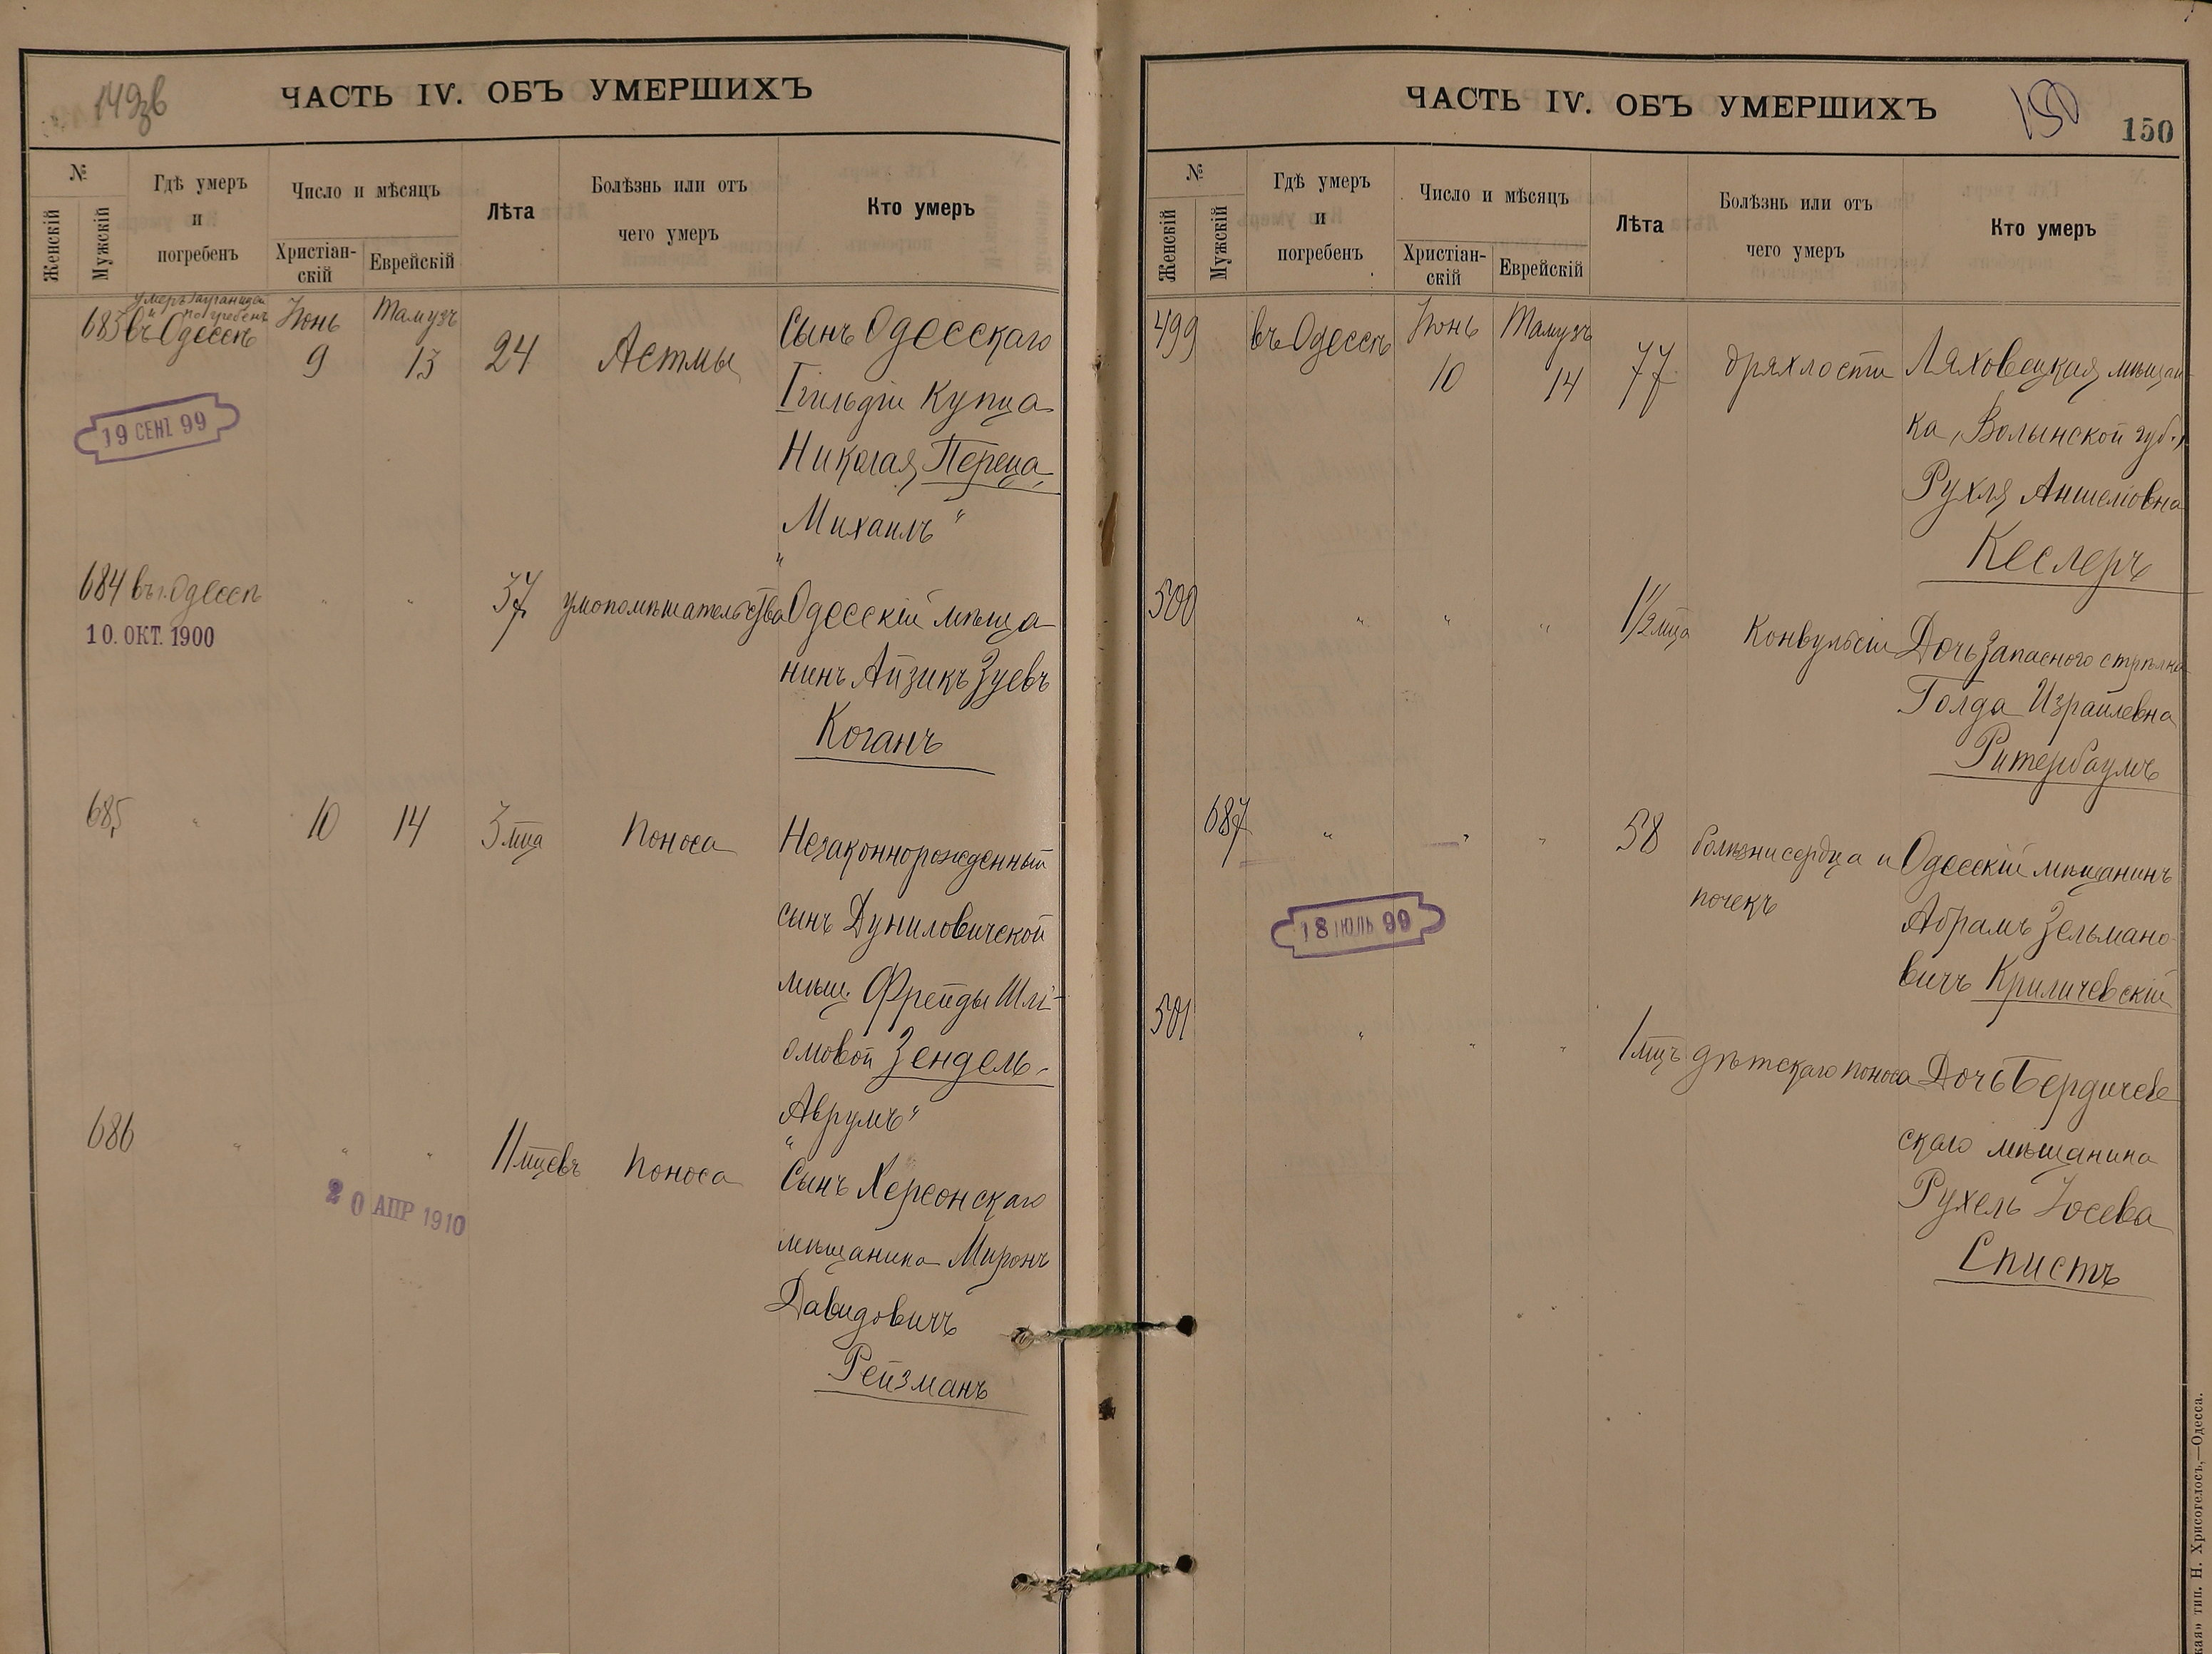 149зв
ЧАСТЬ IV. ОБЪ УМЕРШИХЪ
№
Женскій
Мужскій
Гдѣ умеръ
и
погребенъ
Число и мѣсяцъ
Христіан-
скій
Еврейскій
Лѣта
Болѣзнь или отъ
чего умеръ
Кто умеръ
683
умеръ заграницей
и погребенъ
въ Одессѣ
Іюнь
9
Тамузъ
13
24
Астмы
Сынъ Одесскаго
I гильдіи купца
Николая Переца,
Михаилъ"
19 СЕН 99
684
въ г. Одессѣ
"
"
37
умопомѣшательства
Одесскій мѣща
нинъ Айзикъ Зуевъ
Коганъ
10. ОКТ. 1900
685
"
10
14
3 мца
Поноса
Незаконнорожденный
сынъ Дуниловичской
мѣщ. Фрейды Шлі-
омовой Зендель,
"Аврумъ"
686
"
"
"
11 мцевъ
Поноса
Сынъ Херсонскаго
мѣщанина Миронъ
Давидовичъ
Рейзманъ
20 АПР 1910
ЧАСТЬ IV. ОБЪ УМЕРШИХЪ
150
150
№
Женскій
Мужскій
Гдѣ умеръ
и
погребенъ
Число и мѣсяцъ
Христіан-
скій
Еврейскій
Лѣта
Болѣзнь или отъ
чего умеръ
Кто умеръ
499
въ Одессѣ
Іюнь
10
Тамузъ
14
77
дряхлости
Ляховецкая мѣщан-
ка, Волынской губ.,
Рухля Аншеловна
Кеслеръ
500
"
"
"
1 1/2 мца
Конвульсіи
Дочь запаснаго стрѣлка
Голда Израилевна
Ритербаумъ
687
"
"
"
58
болѣзни сердца и
почекъ
Одесскій мѣщанинъ
Абрамъ Зельмано-
вичъ Криличевскій
18 ІЮЛЬ 99
501
"
"
"
1 мцъ
дѣтскаго поноса
Дочь Бердичев
скаго мѣщанина
Рухель Іосева
Спистъ
кая» тип. Н. Хрисогелосъ,—Одесса.